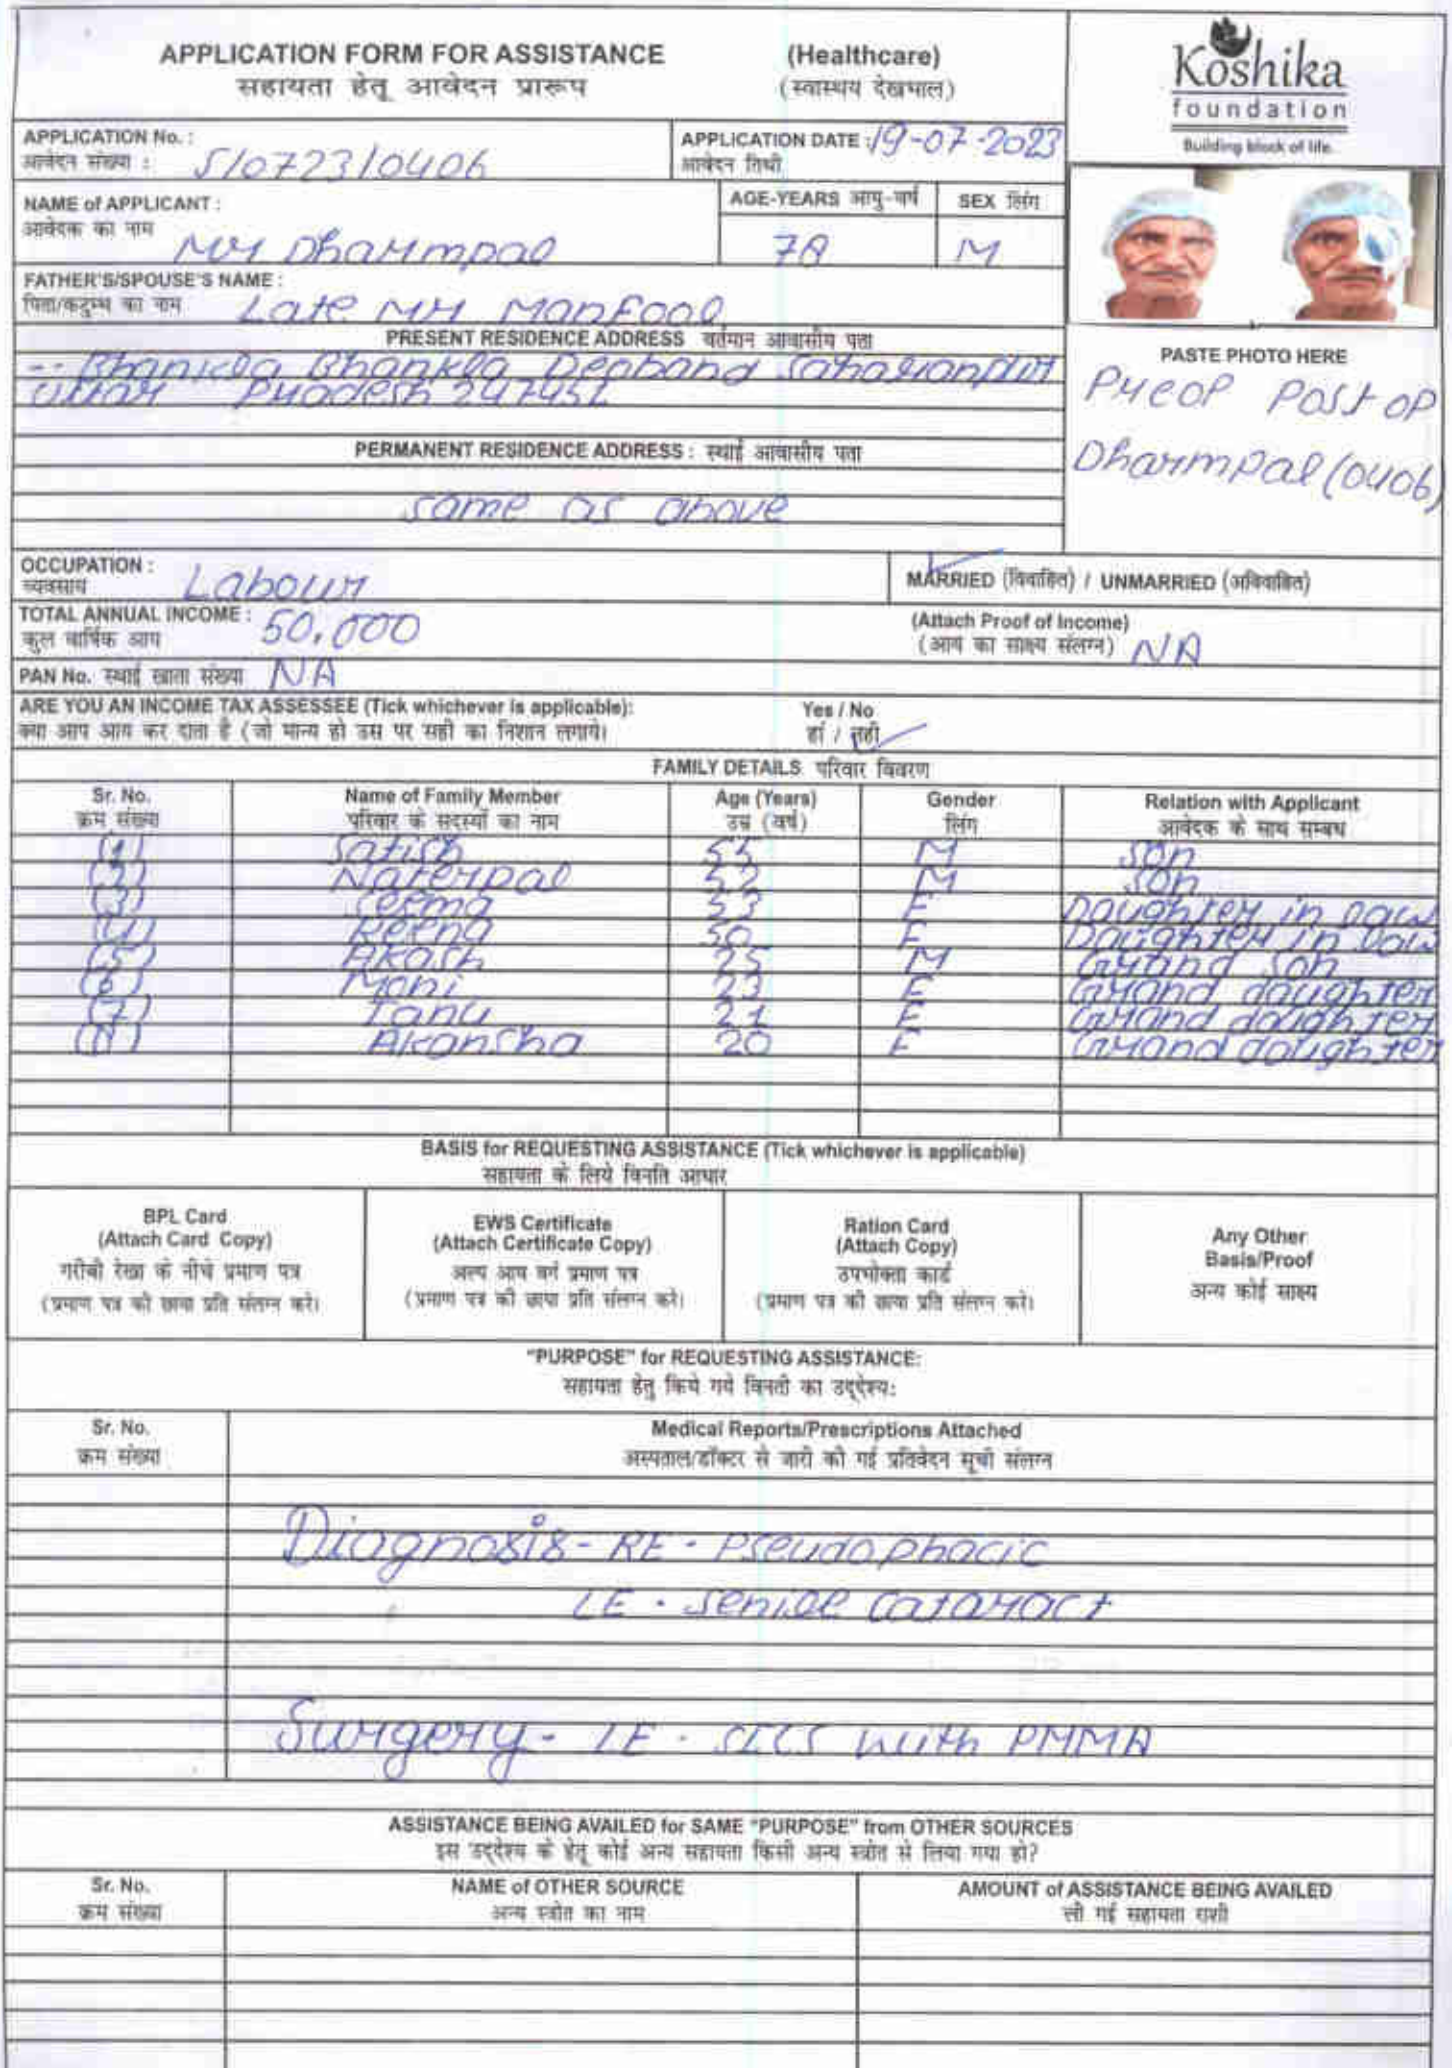 APPLICATION FORM FOR ASSISTANCE (Healthcare)
सहायता हेतू आवेदन प्रारूप (स्वास्थय देखभाल)
Koshika
foundation
Building block of life.
APPLICATION No. :
आवेदन संख्या : S/0723/0406
APPLICATION DATE : 19-07-2023
आवेदन तिथी
NAME of APPLICANT :
आवेदक का नाम Mr Dharmpal
AGE-YEARS आयु-वर्ष
SEX लिंग
M
FATHER'S/SPOUSE'S NAME :
पिता/कटुम्ब का नाम Late Mr Manfool
PRESENT RESIDENCE ADDRESS वर्तमान आवासीय पता
Bhankla Bhankla Deoband Saharanpur
Uttar Pradesh 247452
PERMANENT RESIDENCE ADDRESS : स्थाई आवासीय पता
same as above
PASTE PHOTO HERE
Preop Post op
Dharmpal (0406)
OCCUPATION :
व्यवसाय Labour
MARRIED (विवाहित) / UNMARRIED (अविवाहित)
TOTAL ANNUAL INCOME :
कुल वार्षिक आय 50,000
(Attach Proof of Income)
(आय का साक्ष्य संलग्न) NA
PAN No. स्थाई खाता संख्या NA
ARE YOU AN INCOME TAX ASSESSEE (Tick whichever is applicable): Yes / No
क्या आप आय कर दाता है (जो मान्य हो उस पर सही का निशान लगाये। हां / नही
FAMILY DETAILS परिवार विवरण
Sr. No. Name of Family Member Age (Years) Gender Relation with Applicant
क्रम संख्या परिवार के सदस्यों का नाम उम्र (वर्ष) लिंग आवेदक के साथ सम्बध
(1) Satish 55 M Son
(2) Naterpal 52 M Son
(3) Seema 53 F Daughter in law
(4) Reena 50 F Daughter in law
(5) Akash 25 M Grand son
(6) Moni 23 F Grand daughter
(7) Tanu 21 F Grand daughter
(8) Akansha 20 F Grand daughter
BASIS for REQUESTING ASSISTANCE (Tick whichever is applicable)
सहायता के लिये विनति आधार
BPL Card
(Attach Card Copy)
गरीबी रेखा के नीचे प्रमाण पत्र
(प्रमाण पत्र की छाया प्रति संलग्न करे।
EWS Certificate
(Attach Certificate Copy)
अल्प आय वर्ग प्रमाण पत्र
(प्रमाण पत्र की छाया प्रति संलग्न करे।
Ration Card
(Attach Copy)
उपभोक्ता कार्ड
(प्रमाण पत्र की छाया प्रति संलग्न करे।
Any Other
Basis/Proof
अन्य कोई साक्ष्य
"PURPOSE" for REQUESTING ASSISTANCE:
सहायता हेतु किये गये विनती का उद्देश्य:
Sr. No. Medical Reports/Prescriptions Attached
क्रम संख्या अस्पताल/डॉक्टर से जारी की गई प्रतिवेदन सूची संलग्न
Diagnosis - RE - Pseudophacic
LE - Senile Cataract
Surgery - LE - SICS with PMMA
ASSISTANCE BEING AVAILED for SAME "PURPOSE" from OTHER SOURCES
इस उद्देश्य के हेतू कोई अन्य सहायता किसी अन्य स्त्रोत से लिया गया हो?
Sr. No. NAME of OTHER SOURCE AMOUNT of ASSISTANCE BEING AVAILED
क्रम संख्या अन्य स्त्रोत का नाम ली गई सहायता राशी